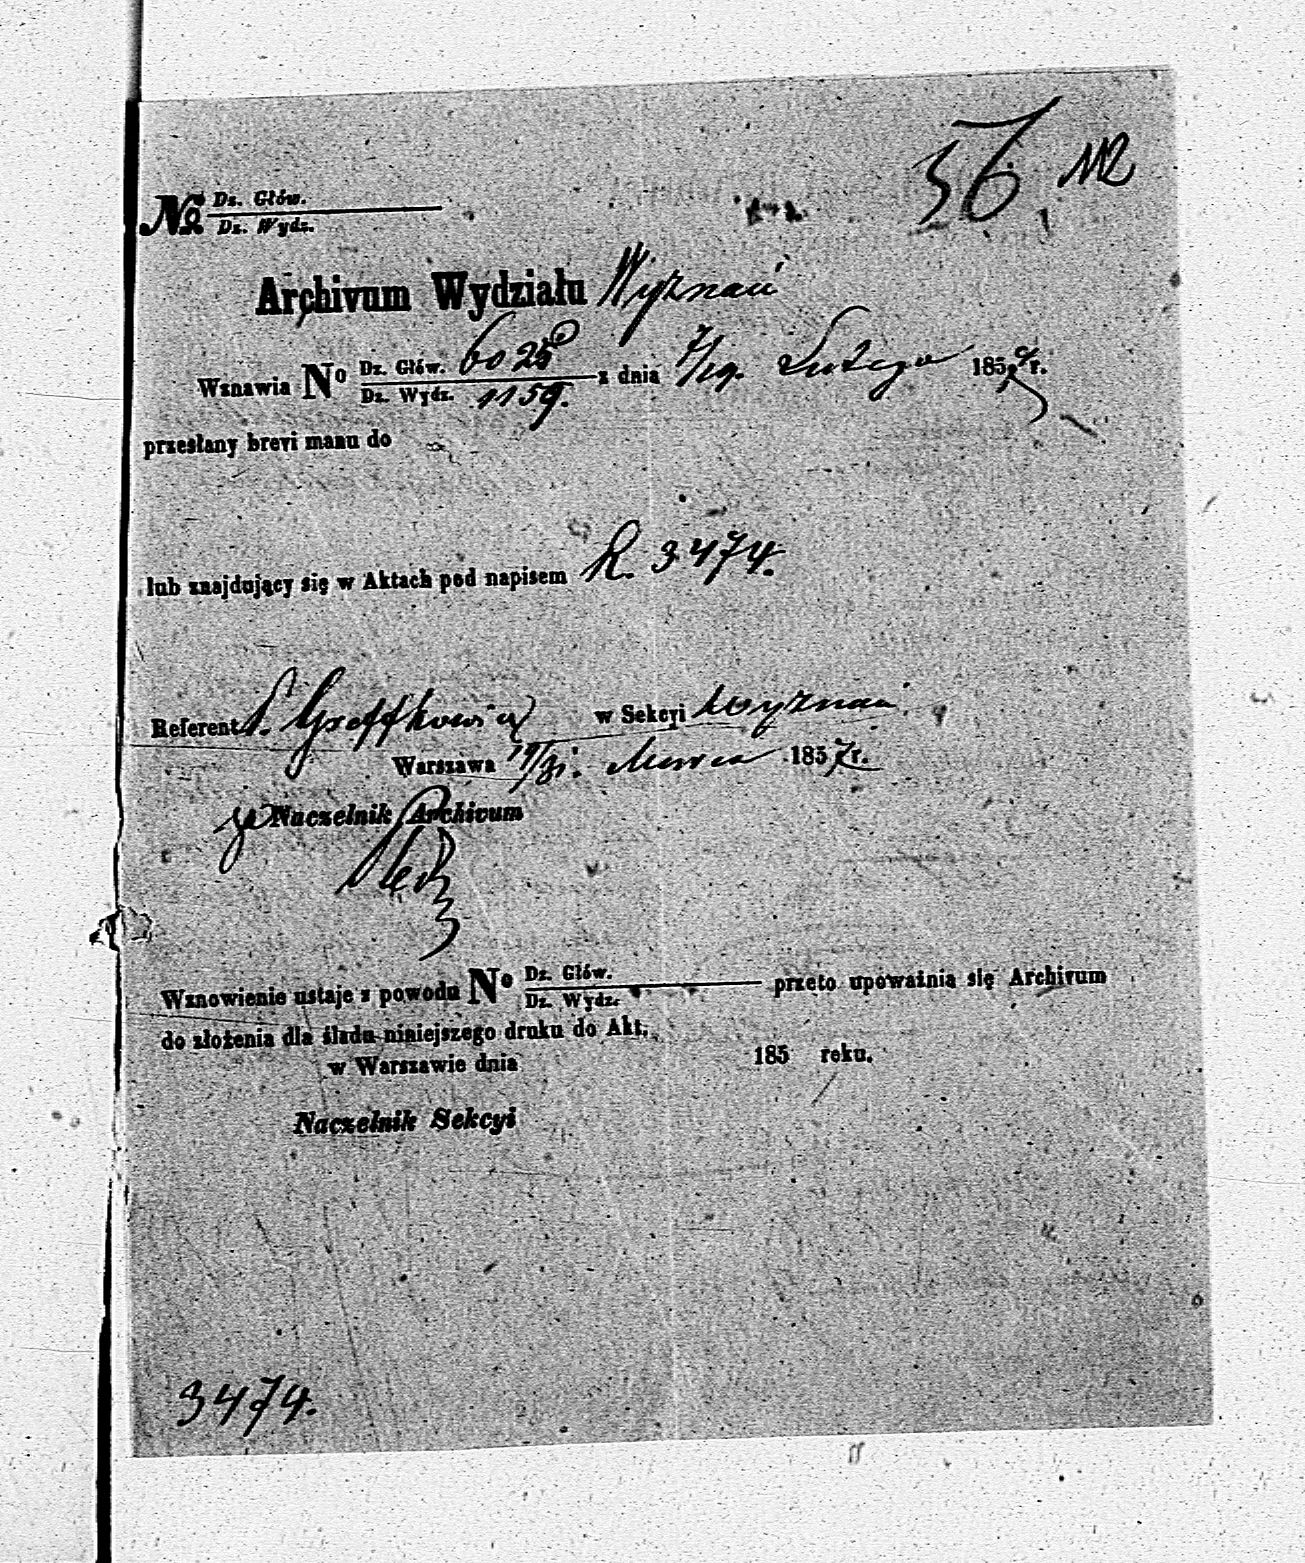 56 112
№ Dz. Głów.
Dz. Wydz.
Archivum Wydziału Wyznań
Wznawia No Dz. Głów. 6025 z dnia 7/19. Lutego 1857 r.
Dz. Wydz. 1159.
przesłany brevi manu do
lub znajdujący się w Aktach pod napisem R. 3474.
Referent w Sekcyi Wyznań
Warszawa 19/31. Marca 1857 r.
Naczelnik Archivum
Wznowienie ustaje z powodu No Dz. Głów. przeto upoważnia się Archivum
Dz. Wydz.
do złożenia dla śladu niniejszego druku do Akt.
w Warszawie dnia 185 roku.
Naczelnik Sekcyi
3474.